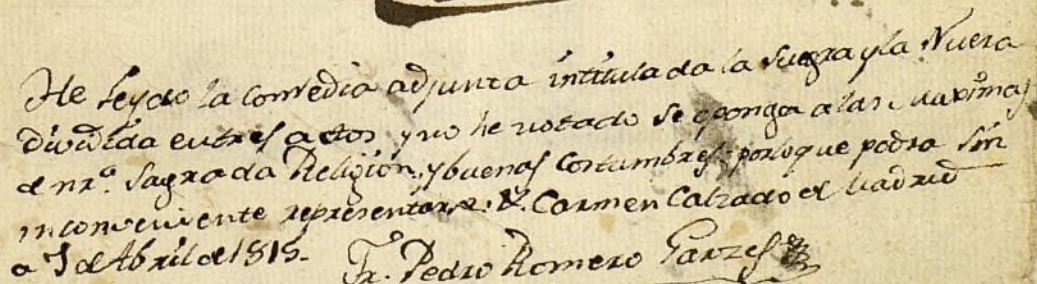 He leydo la comedia adjunta intitulada la Suegra y la Nuera
dividida en tres actos y no he notado se oponga a las maximas
de nrâ. Sagrada Religion, y buenas costumbres, por lo que podra sin
inconveniente representarse. Carmen Calzado de Madrid
a 7 de Abril de 1815.
Fr. Pedro Romero Garzes